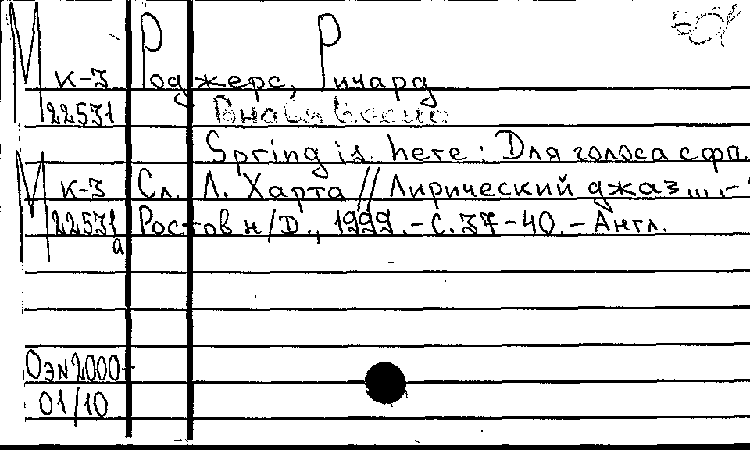 М к-3 Роджерс, Ричард
22531
Spring is here: Для голоса с фп.
М к-3 Сл. Л. Харта // Лирический джаз... .-
22531а Ростов н/Д., 1999.-С.37-40.-Англ.
ОэN2000-
01/10